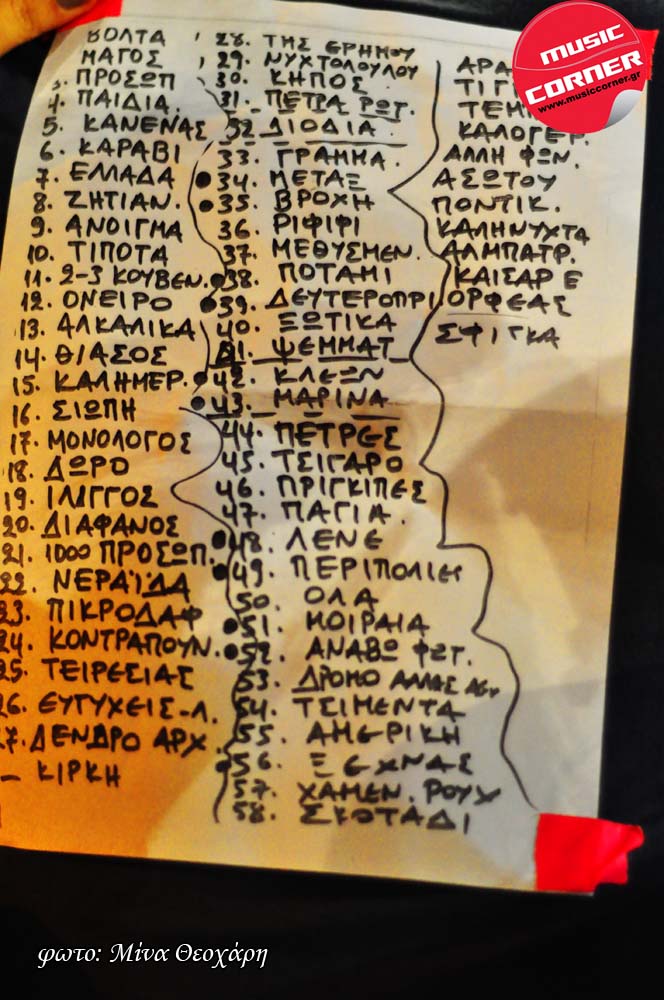 ΒΟΛΤΑ
ΜΑΓΟΣ
3. ΠΡΟΣΩΠ
4. ΠΑΙΔΙΑ.
5. ΚΑΝΕΝΑΣ
6. ΚΑΡΑΒΙ
7. ΕΛΛΑΔΑ
8. ΖΗΤΙΑΝ.
9. ΑΝΟΙΓΜΑ
10. ΤΙΠΟΤΑ
11. 2-3 ΚΟΥΒΕΝ.
12. ΟΝΕΙΡΟ
13. ΑΛΚΑΛΙΚΑ
14. ΘΙΑΣΟΣ
15. ΚΑΛΗΜΕΡ.
16. ΣΙΩΠΗ
17. ΜΟΝΟΛΟΓΟΣ
18. ΔΩΡΟ
19. ΙΛΙΓΓΟΣ
20. ΔΙΑΦΑΝΟΣ
21. 1000 ΠΡΟΣΩΠ.
22. ΝΕΡΑΪΔΑ
23. ΠΙΚΡΟΔΑΦ
24. ΚΟΝΤΡΑΠΟΥΝ.
25. ΤΕΙΡΕΣΙΑΣ
26. ΕΥΤΥΧΕΙΣ-Λ.
27. ΔΕΝΔΡΟ ΑΡΧ.
- ΚΙΡΚΗ
28. ΤΗΣ ΕΡΗΜΟΥ
29. ΝΥΧΤΟΠΟΥΛΟΥ
30. ΚΗΠΟΣ
31. ΠΕΤΡΑ ΡΩΤ.
32. ΔΙΟΔΙΑ
33. ΓΡΑΜΜΑ.
34. ΜΕΤΑΞ
35. ΒΡΟΧΗ
36. ΡΙΦΙΦΙ
37. ΜΕΘΥΣΜΕΝ.
38. ΠΟΤΑΜΙ
39. ΔΕΥΤΕΡΟΠΡΙ
40. ΞΩΤΙΚΑ
41. ΨΕΜΜΑΤ
42. ΚΛΕΩΝ
43. ΜΑΡΙΝΑ
44. ΠΕΤΡΕΣ
45. ΤΣΙΓΑΡΟ
46. ΠΡΙΓΚΙΠΕΣ
47. ΠΑΓΙΑ.
48. ΛΕΝΕ
49. ΠΕΡΙΠΟΛΙΕΣ
50. ΟΛΑ
51. ΜΟΙΡΑΙΑ
52. ΑΝΑΒΩ ΦΩΤ.
53. ΔΡΟΜΟ ΑΛΛΑΣ
54. ΤΣΙΜΕΝΤΑ
55. ΑΜΕΡΙΚΗ
56. ΞΕΧΝΑΣ
57. ΧΑΜΕΝ. ΡΟΥΧ
58. ΣΚΟΤΑΔΙ
ΑΡΑ
ΤΙΓ
ΤΕΜ
ΚΑΛΟΓΕΡ.
ΑΛΛΗ ΦΩΝ.
ΑΣΩΤΟΥ
ΠΟΝΤΙΚ.
ΚΑΛΗΝΥΧΤΑ
ΑΛΜΠΑΤΡ.
ΚΑΙΣΑΡΕ
ΟΡΦΕΑΣ
ΣΦΙΓΚΑ
MUSIC
CORNER
www.musiccorner.gr
φωτο: Μίνα Θεοχάρη